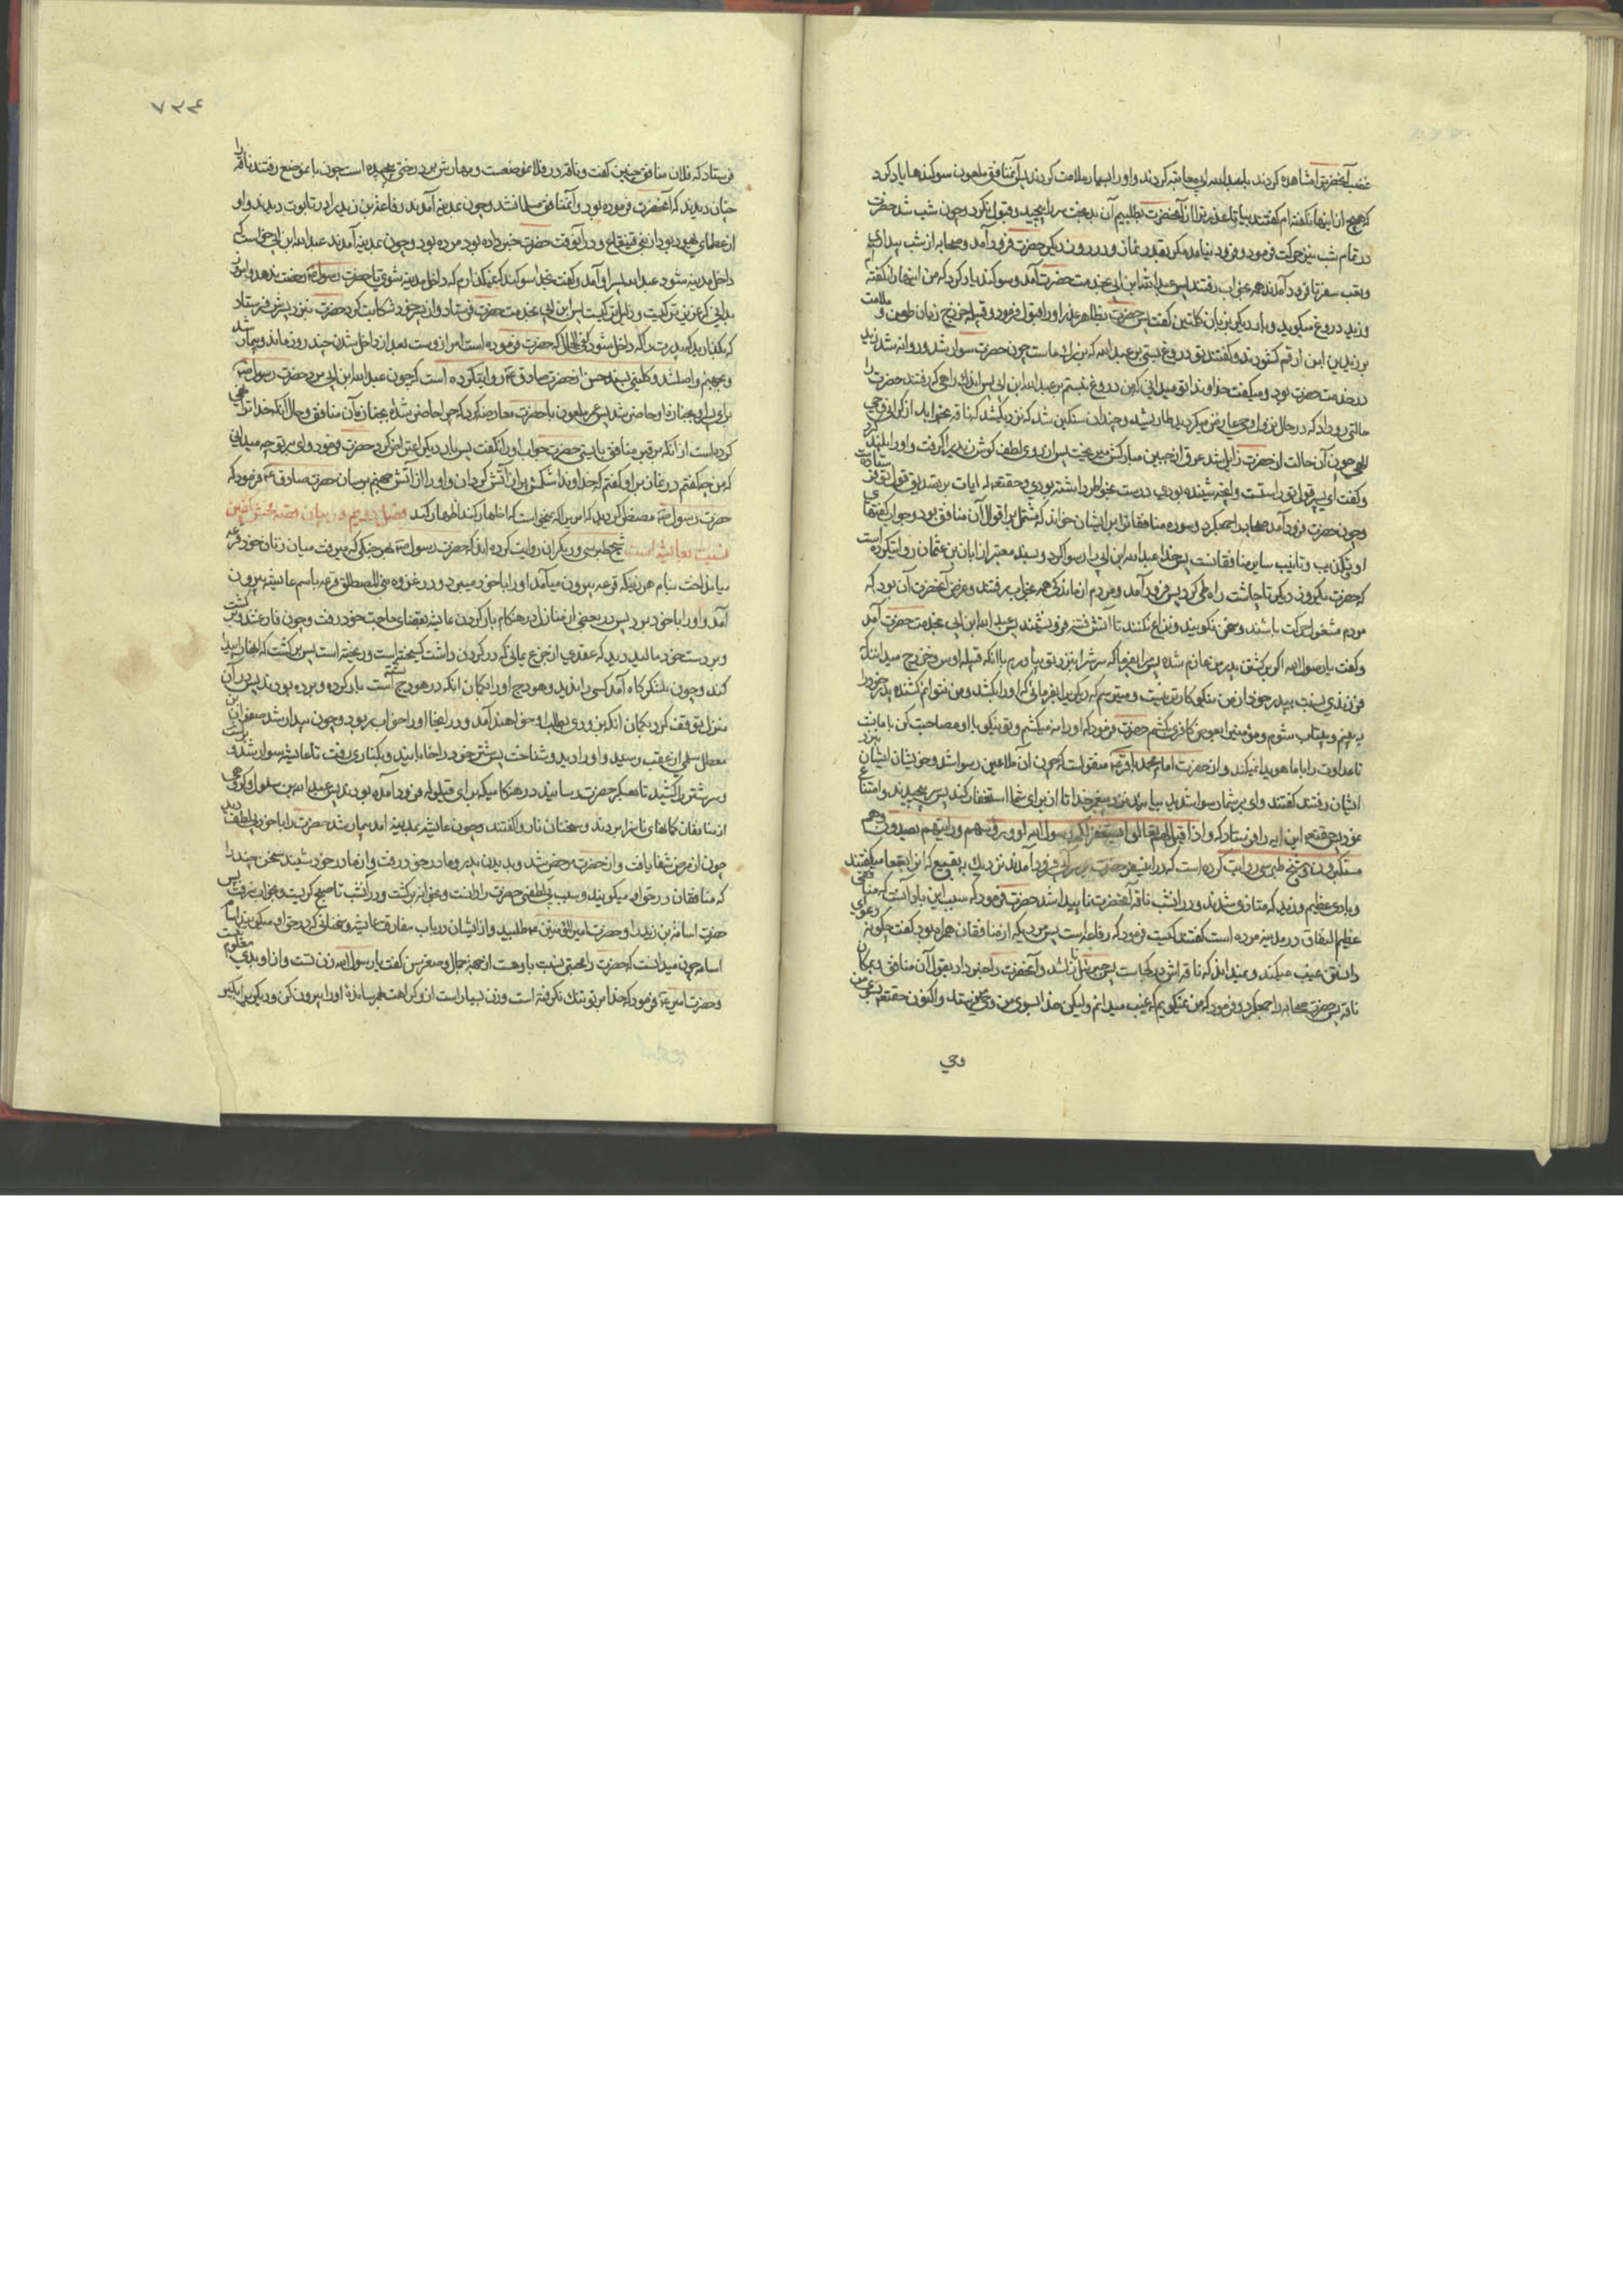 غضب آنحضرت را مشاهده کردند بعبدالله ابی معاتبه کردند و او را بسیار ملامت کردند پس آنمنافق ملعون سوکندها یاد کرد
که هیچ از اینها نکفته ام کفتند بیا تا عذر ترا از آنحضرت بطلبیم آن بدبخت سر را پیچید و قبول نکرد و چون شب شد حضرت
در تمام شب نیز حرکت فرمود و فرود نیامد مکر بقدر نماز و در روز دیکر حضرت فرود آمد و صحابه از شب بیداری
و تعب سفر تا فرود آمدند همه بخواب رفتند پس عبدالله ابن ابی بخدمت حضرت آمد و سوکند یاد کرد که من اینها را نکفته ام
و زید دروغ میکوید و بار دیکر بزبان کلمتین کفت پس حضرت بظاهر عذر او را قبول فرمود و قبیله خزرج زبان طعن و ملامت
بر زید بن ارقم کشودند و کفتند تو دروغ بستی بر عبدالله که بزرک ماست چون حضرت سوار شد و روانه شد زید
در خدمت حضرت بود و میکفت خداوندا تو میدانی که من دروغ نبستم بر عبدالله ابن ابی پس اندک راهی که رفتند حضرت را
حالتی رو داد که در حال نزول وحی عارض میکردید طاری شد و چندان سنکین شد که نزدیک شد که ناقه بخوابد از کرانی وحی
الهی چون آن حالت از حضرت زایل شد عرق از جبین مبارکش میریخت پس از روی لطف کوش زید را کرفت و او را بلند کرد
و کفت ای پسر قول تو راستست و آنچه شنیده بودی درست بخاطر داشته بودی و حقتعالی آیات بر تصدیق قول تو فرستاده است
و چون حضرت فرود آمد صحابه را جمع کرد و سوره منافقان را بر ایشان خواند که مشتمل بر اقوال آن منافق بود و جواب کفتهای
او و تکذیب و تانیب سایر منافقانست پس خدا عبدالله ابن ابی را رسوا کرد و بسند معتبر از ابان بن عثمان روایتکرده است
که حضرت یکروز دیکر تا چاشت راه طی کرد پس فرود آمد و مردم از ماندکی همه بخواب رفتند و غرض آنحضرت آن بود که
مردم مشغول حرکت باشند و سخن نکویند و نزاع نکنند تا آتش فتنه فرو نشیند پس عبدالله ابن ابی بخدمت حضرت آمد
و کفت یا رسول الله اکر بر کشتن پدر من عازم شده پس مرا بفرما که سرش را بنزد تو بیاورم با آنکه قبیله اوس و خزرج میدانند که
فرزندی نسبت بپدر خود از من نیکو کارتر نیست و میترسم که دیکری را بفرمائی که او را بکشد و من نتوانم کشنده پدر خود را
ببینم و بیتاب شوم و مؤمنی را بعوض کافری بکشم حضرت فرمود که او را نمیکشم و تو نیکو با او مصاحبت کن با ما بنشین
تا عداوت را با ما هویدا نمیکند و از حضرت امام محمد باقر ع منقولست که چون آن ملاعین رسوا شد و خویشان ایشان بنزد
ایشان رفتند کفتند وای بر شما رسوا شدید بیائید نزد پیغمبر خدا تا از برای شما استغفار کند پس سر پیچیدند و امتناع
نمودند پس حقتعالی این آیه را فرستاد که و اذا قیل لهم تعالوا یستغفر لکم رسول الله لووا رؤسهم و رایتهم یصدون و هم
مستکبرون و شیخ طبرسی روایت کرده است که در این سفر حضرت بر سر آبی فرود آمدند نزدیک به بقیع که انرا بقعا میکفتند
و بادی عظیم وزید که متاذی شدند و در انشب ناقه آنحضرت ناپیدا شد حضرت فرمود که سبب این باد آنست که منافقی
عظیم النفاق در مدینه مرده است کفتند کیست فرمود که رفاعه است پس مردی که از منافقان همراه بود کفت چکونه دعوی
دانستن غیب میکند و نمیداند که ناقه اش در کجاست پس جبرئیل نازل شد و آنحضرت را خبر داد بقول آن منافق و بمکان
ناقه پس حضرت صحابه را جمع کرد و فرمود که من نمیکویم که غیب میدانم ولیکن خدا بسوی من وحی میفرستد و اکنون حقتعالی بسوی من
وحی
۷۳۴
فرستاد که فلان منافق چنین کفت و ناقه در فلان موضعست و مهارش بر درختی پیچیده است چون بانموضع رفتند ناقه را
چنان دیدند که آنحضرت فرموده بود و آنمنافق مسلمان شد و چون بمدینه آمدند رفاعه بن زید را در تابوت دیدند و او
از عظمای یهود بود از بنی قینقاع و در آنوقت حضرت خبر داده بود مرده بود و چون بمدینه آمدند عبدالله ابن ابی خواست که
داخل مدینه شود عبدالله پسر او آمد و کفت بخدا سوکند که نمیکذارم که داخل مدینه شوی تا حضرت رسول ص رخصت بدهد و امروز
بدانی که عزیزتر کیست و ذلیل تر کیست پس ابن ابی بخدمت حضرت فرستاد و از پسر خود شکایت کرد حضرت بنزد پسرش فرستاد
که بکذارید که پدرت را که داخل شود کفت الحال که حضرت فرموده است امر از وست بعد از داخل شدن چند روز ماند و بیمار شد
و بجهنم واصل شد و کلینی بسند حسن از حضرت صادق ع روایتکرده است که چون عبدالله ابن ابی مرد حضرت رسول ص
برای او بجنازه او حاضر شد پس عمر ملعون با حضرت معارضه کرد که چرا حاضر شدی بجنازه آن منافق و حال آنکه خدا ترا نهی
کرده است از آنکه بر قبر منافق بایستی حضرت جواب او را نکفت پس بار دیکر اعتراض کرد حضرت فرمود وای بر تو چه میدانی
که من چه کفتم در نماز بر او کفتم که خداوندا شکمش پر از آتش کردان و او را از آتش جهنم برسان حضرت صادق ع فرمود که
حضرت رسول ص مضطر کردید که امری را که نمیخواست که اظهار کند اظهار کند فصل دویم در بیان قصه فحش آفرین
نسبت بعایشه است شیخ طبرسی و دیکران روایت کرده اند که حضرت رسول ص بهر جنکی که میرفت میان زنان خود قرعه
میانداخت بنام هر زنیکه قرعه بیرون میآمد او را با خود میبرد و در غزوه بنی المصطلق قرعه باسم عایشه بیرون
آمد و او را با خود برد پس در بعضی از منازل در هنکام بار کردن عایشه بقضای حاجت خود رفت و چون فارغ شد و برکشت
و بر دست خود مالید دید که عقدی از جزع یمانی که در کردن داشت کسیخته است و ریخته است پس برکشت که آنها را پیدا
کند و چون بلشکرکاه آمد کسی را ندید و هودج او را بکمان آنکه در هودج نشسته است بار کرده و برده بودند پس در آن
منزل توقف کرد بکمان آنکه بزودی بطلب او خواهند آمد و در اینجا او را خواب ربود و چون بیدار شد صفوان بن
معطل سلمی از عقب رسید و او را دید و شناخت پس شتر خود را خوابانید و بکناری رفت تا عایشه سوار شد و
و سر شتر را کشید تا بعسکر حضرت رسانید در هنکامیکه برای قیلوله فرود آمده بودند پس عبدالله بن سلول و کروهی
از منافقان کمانهای ناسزا بردند و سخنان ناروا کفتند و چون عایشه بمدینه آمد بیمار شد حضرت را با خود بی لطف دید
چون از مرض شفا یافت و از حضرت مرخص شد و بدیدن پدر و مادر خود رفت و از مادر خود شنید سخنی چند را
که منافقان در حق او میکویند و سبب بی لطفی حضرت را دانست و بخانه برکشت و در آنشب تا صبح کریست و بخواب نرفت پس
حضرت اسامة بن زید را و حضرت امیرالمؤمنین ع طلبید و از ایشان در باب مفارقت عایشه و سخنانی که در حق او میکویند
اسامه چون میدانست که حضرت را محبتی نسبت باو هست از جهة جمال و صغر سن کفت یا رسول الله زن تست و از او بدی معلوم نیست
و حضرت امیر ع فرمود که خدا بر تو تنک نکرفته است و زن بسیار است از و کراهت بهم رسانده او را بیرون کن و دیکری را بکیر